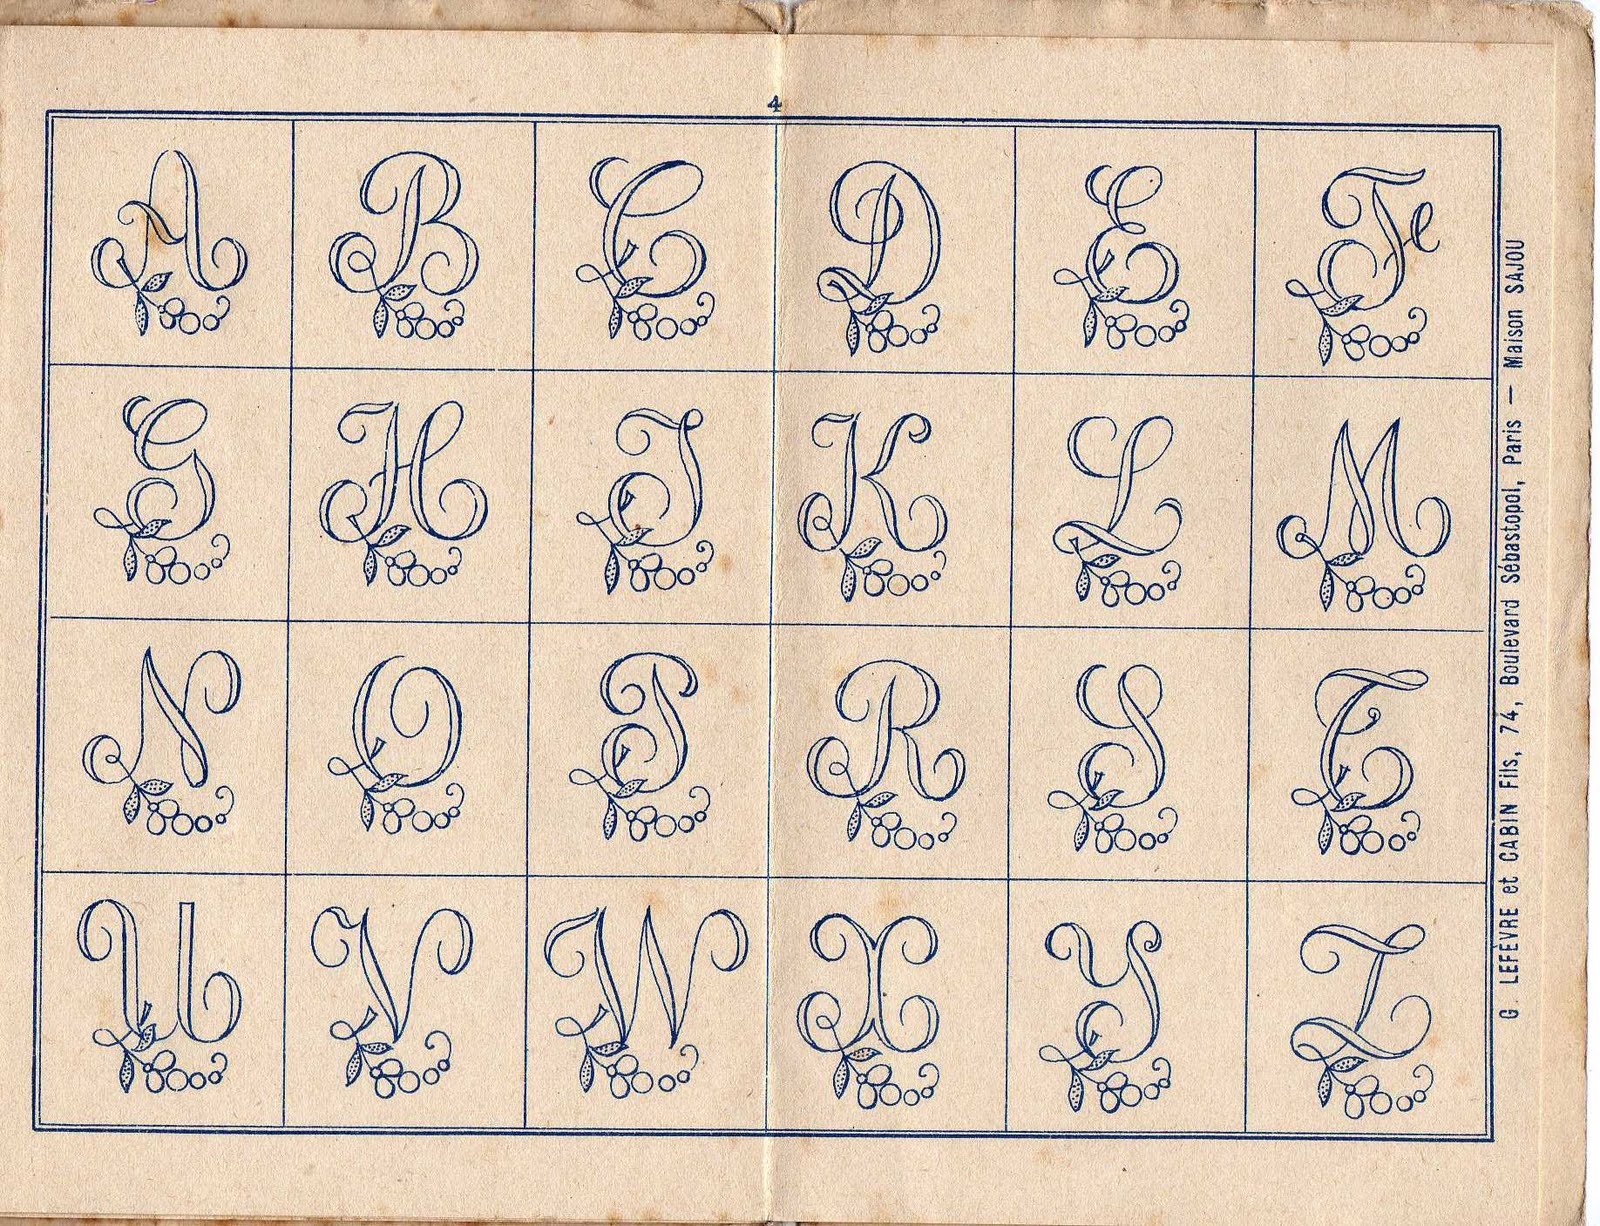 4
A B C D E F
G H J K L M
N O P R S T
U V W X Y Z
G. LEFÈVRE et CABIN Fils, 74, Boulevard Sébastopol, Paris — Maison SAJOU